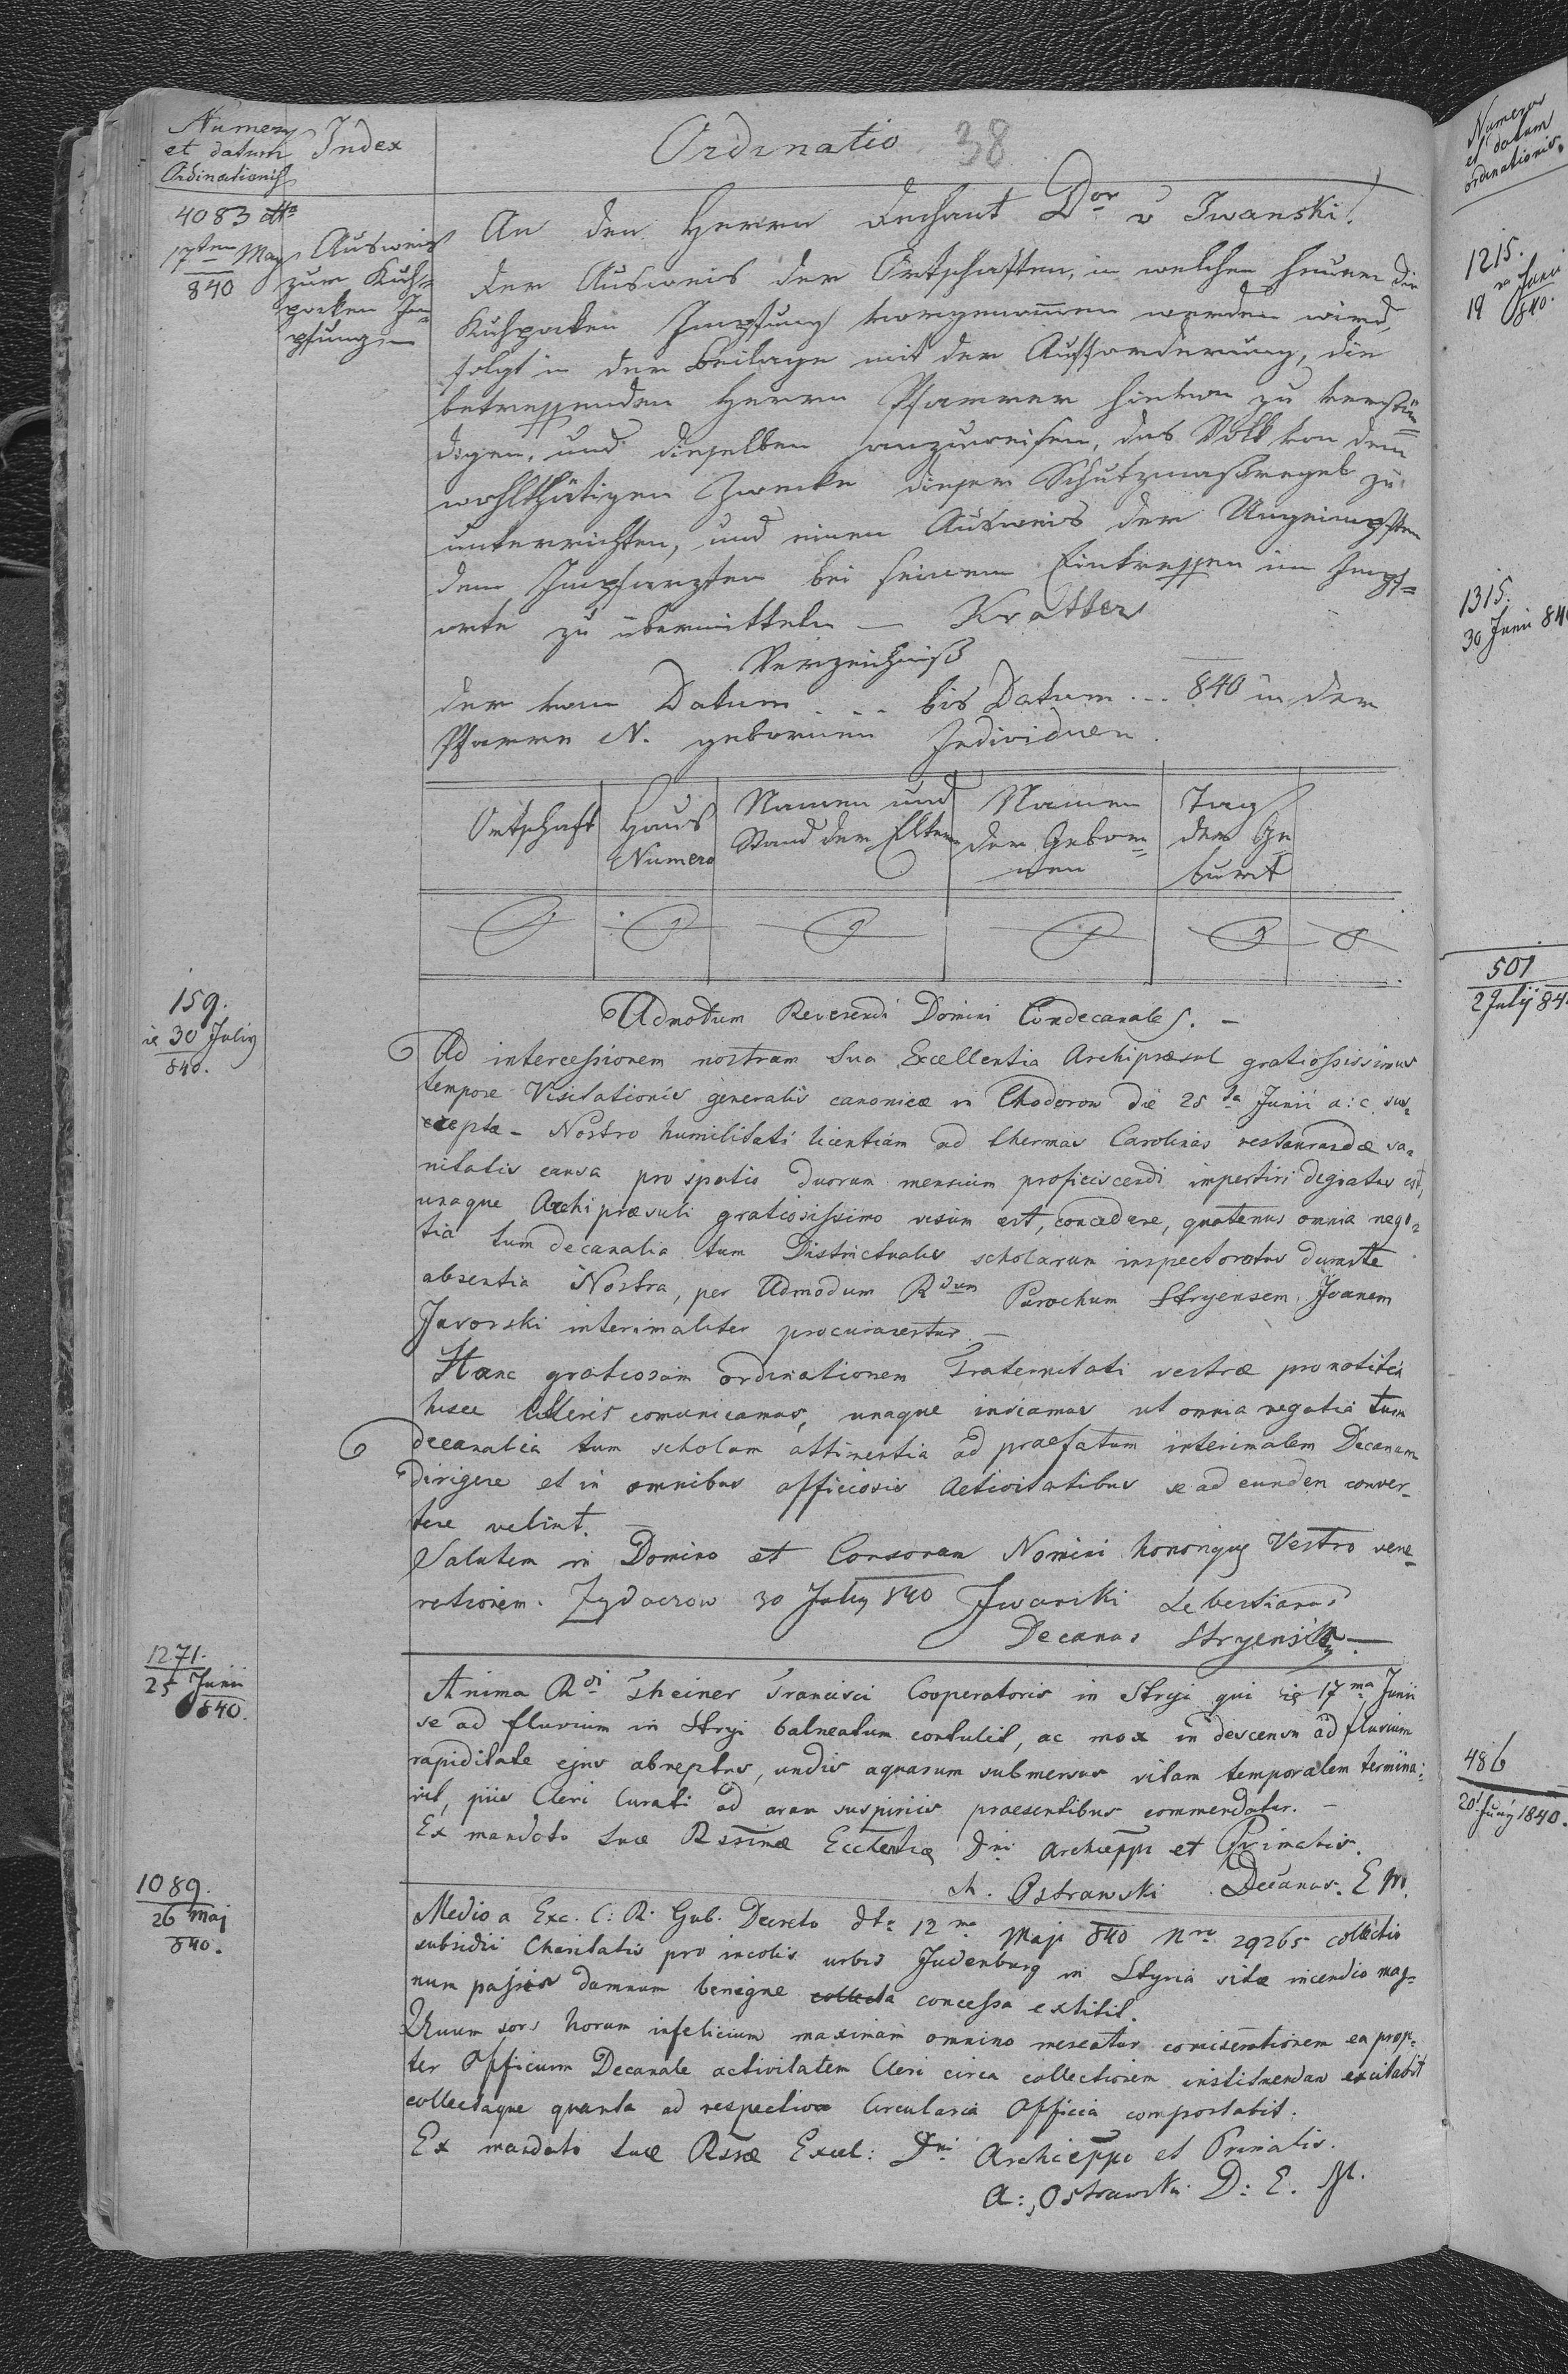 Numerus
et datum
Ordinationis
Index
Ordinatio
38
4083
17ten May
840
Ausweis
zur Kuh=
pocken Im=
pfung
An den Herrn Dechant Dor v Iwanski!
Der Ausweis der Ortschaften, in welchen heuer die
Kuhpocken Impfung vorgenommen werden wird,
folgt in der Beilage mit der Aufforderung, die
betreffenden Herrn Pfarrer hievon zu verstän=
digen, und dieselben anzuweisen, das Volk von dem
wohlthätigen Zwecke dieser Schutzmaßregel zu
unterrichten, und einen Ausweis der Ungeimpften
dem Impfarzten bei seinem Eintreffen im Impf=
orte zu übermitteln — Kratter
Verzeichniß
der vom Datum . . . bis Datum . . . 840 in der
Pfarre N. gebornen Individuen.
Ortschaft
Haus
Numero
Namen und
Stand der Eltern
Namen
der Gebor=
nen
Tag
der Ge
burt
159.
30 July
840.
Admodum Reverendi Domini Condecanales. —
Ad intercessionem nostram Sua Excellentia Archipraesul gratiosissimus
tempore Visitationis generalis canonicae in Chodorow die 25 ta Junii a: c. sus=
cepta - Nostro humilitati licentiam ad thermas Carolinas restaurandae sa=
nitatis causa pro spatio duorum mensium proficiscendi impertiri dignatus est,
unaque Archipraesuli gratiosissimo visum est, concedere, quatenus omnia nego=
tia tum decanalia tum Districtualis scholarum inspectoratus durante
absentia Nostra, per Admodum Rdum Parochum Stryensem Joanem
Javorski interimaliter procurarentur. —
Hanc gratiosam ordinationem Fraternitati vestrae pro notitia
hisce litteris comunicamus, unaque inviamus ut omnia negotia tum
decanalia tum scholam attinentia ad praefatum interimalem Decanum
dirigere et in omnibus officiosis activitatibus se ad eundem conver=
tere velint. —
Salutem in Domino et Consoram Nomini honorique Vestro vene=
rationem. Zydaczow 30 July 840 Iwanski Sebestianus
Decanus Stryensis —
1271.
25 Junii
840.
Anima Rdi Theiner Francisci Cooperatoris in Stryi qui 17 ma Junii
se ad fluvium in Stryi balneatum contulit, ac mox in descensu ad fluvium
rapiditate ejus abreptus, undis aquarum submersus vitam temporalem termina=
vit, piis Cleri Curati ad aram suspiriis praesentibus commendatur. —
Ex mandato Suae Rssimae Dni Archieppi et Primatis.
Ostrawski Decanus. E M.
1089.
26 Maj
840.
Medio a Exc. C: R. Gub. Decreto dto 12 ma Maji 840 Nro 29265 collectio
subsidii Charitatis pro incolis urbis Judenburg in Styria sitae incendio mag=
num passis damnum benigne collecta concessa extitit.
Quum sors horum infelicium maximam omnino mereatur comiserationem ea prop=
ter Officium Decanale activitatem Cleri circa collectionem instituendam excitabit
collectaque quanta ad respectiva Circularia Officia comportabit.
Ex mandato Suae Rssae Excel: Dni Archieppi et Primatis.
A: Ostrawski D: E. M.
Numerus
et datum
ordinationis.
1215.
19 Junii
840.
1315.
30 Junii 840
501
2 July 84
486
20 Juny 1840.